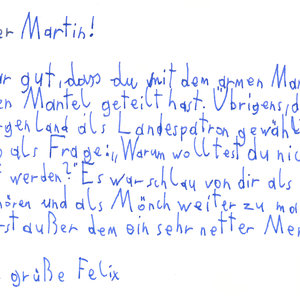 er Martin!
ar gut, dass du mit dem armen Man
en Mantel geteilt hast. Übrigens, d
rgenland als Landespatron gewähl
o als Frage: „Warum wolltest du nic
t werden?" Es war schlau von dir als
hören und als Mönch weiter zu ma
rst außer dem ein sehr netter Me
grüße Felix